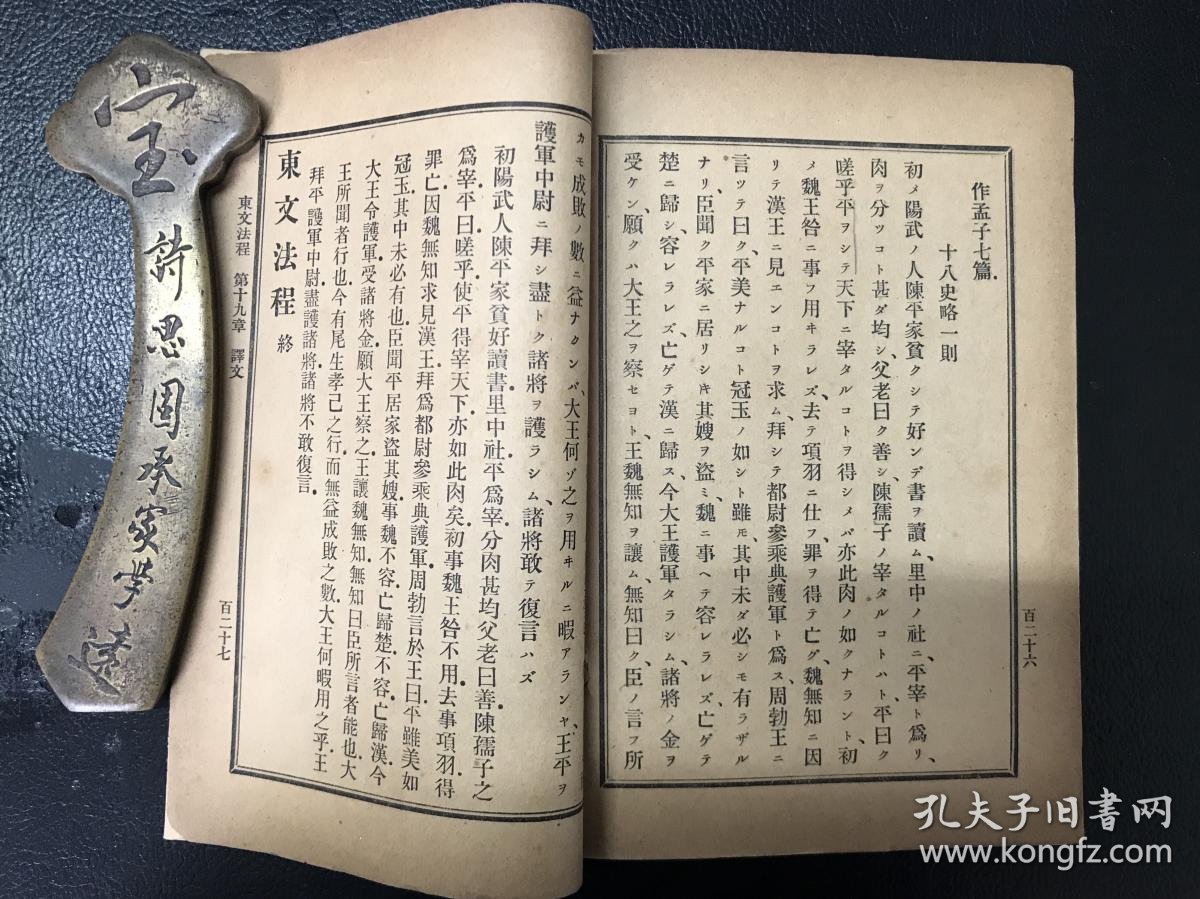 作孟子七篇.
十八史略一則
初メ陽武ノ人陳平家貧クシテ好ンデ書ヲ讀ム、里中ノ社ニ、平宰ト爲リ、
肉ヲ分ツコト甚ダ均シ、父老曰ク善シ、陳孺子ノ宰タルコトハト、平曰ク
嗟乎平ヲシテ天下ニ宰タルコトヲ得シメバ亦此肉ノ如クナラント、初
メ魏王咎ニ事フ用ヰラレズ、去テ項羽ニ仕フ、罪ヲ得テ亡グ、魏無知ニ因
リテ漢王ニ見エンコトヲ求ム、拜シテ都尉參乘典護軍ト爲ス、周勃王ニ
言ツテ曰ク、平美ナルコト冠玉ノ如シト雖モ、其中未ダ必シモ有ラザル
ナリ、臣聞ク平家ニ居リシキ其嫂ヲ盜ミ、魏ニ事ヘテ容レラレズ、亡ゲテ
楚ニ歸シ、容レラレズ、亡ゲテ漢ニ歸ス、今大王護軍タラシム、諸將ノ金ヲ
受ケン、願クハ大王之ヲ察セヨト、王魏無知ヲ讓ム、無知曰ク、臣ノ言フ所
百二十六
カモ成敗ノ數ニ益ナクンバ、大王何ゾ之ヲ用ヰルニ暇アランヤ、王平ヲ
護軍中尉ニ拜シ盡トク諸將ヲ護ラシム、諸將敢テ復言ハズ
初陽武人陳平家貧好讀書.里中社平爲宰.分肉甚均.父老曰善.陳孺子之
爲宰.平曰嗟乎.使平得宰天下.亦如此肉矣.初事魏王咎不用.去事項羽.得
罪亡.因魏無知求見漢王.拜爲都尉參乘典護軍.周勃言於王曰.平雖美如
冠玉.其中未必有也.臣聞平居家盜其嫂.事魏不容.亡歸楚.不容.亡歸漢.今
大王令護軍.受諸將金.願大王察之.王讓魏無知.無知曰.臣所言者能也.大
王所聞者行也.今有尾生孝己之行.而無益成敗之數.大王何暇用之乎.王
拜平護軍中尉.盡護諸將.諸將不敢復言.
東文法程 終
東文法程 第十九章 譯文
百二十七
宝
詩思固承
遠
孔夫子旧书网
www.kongfz.com